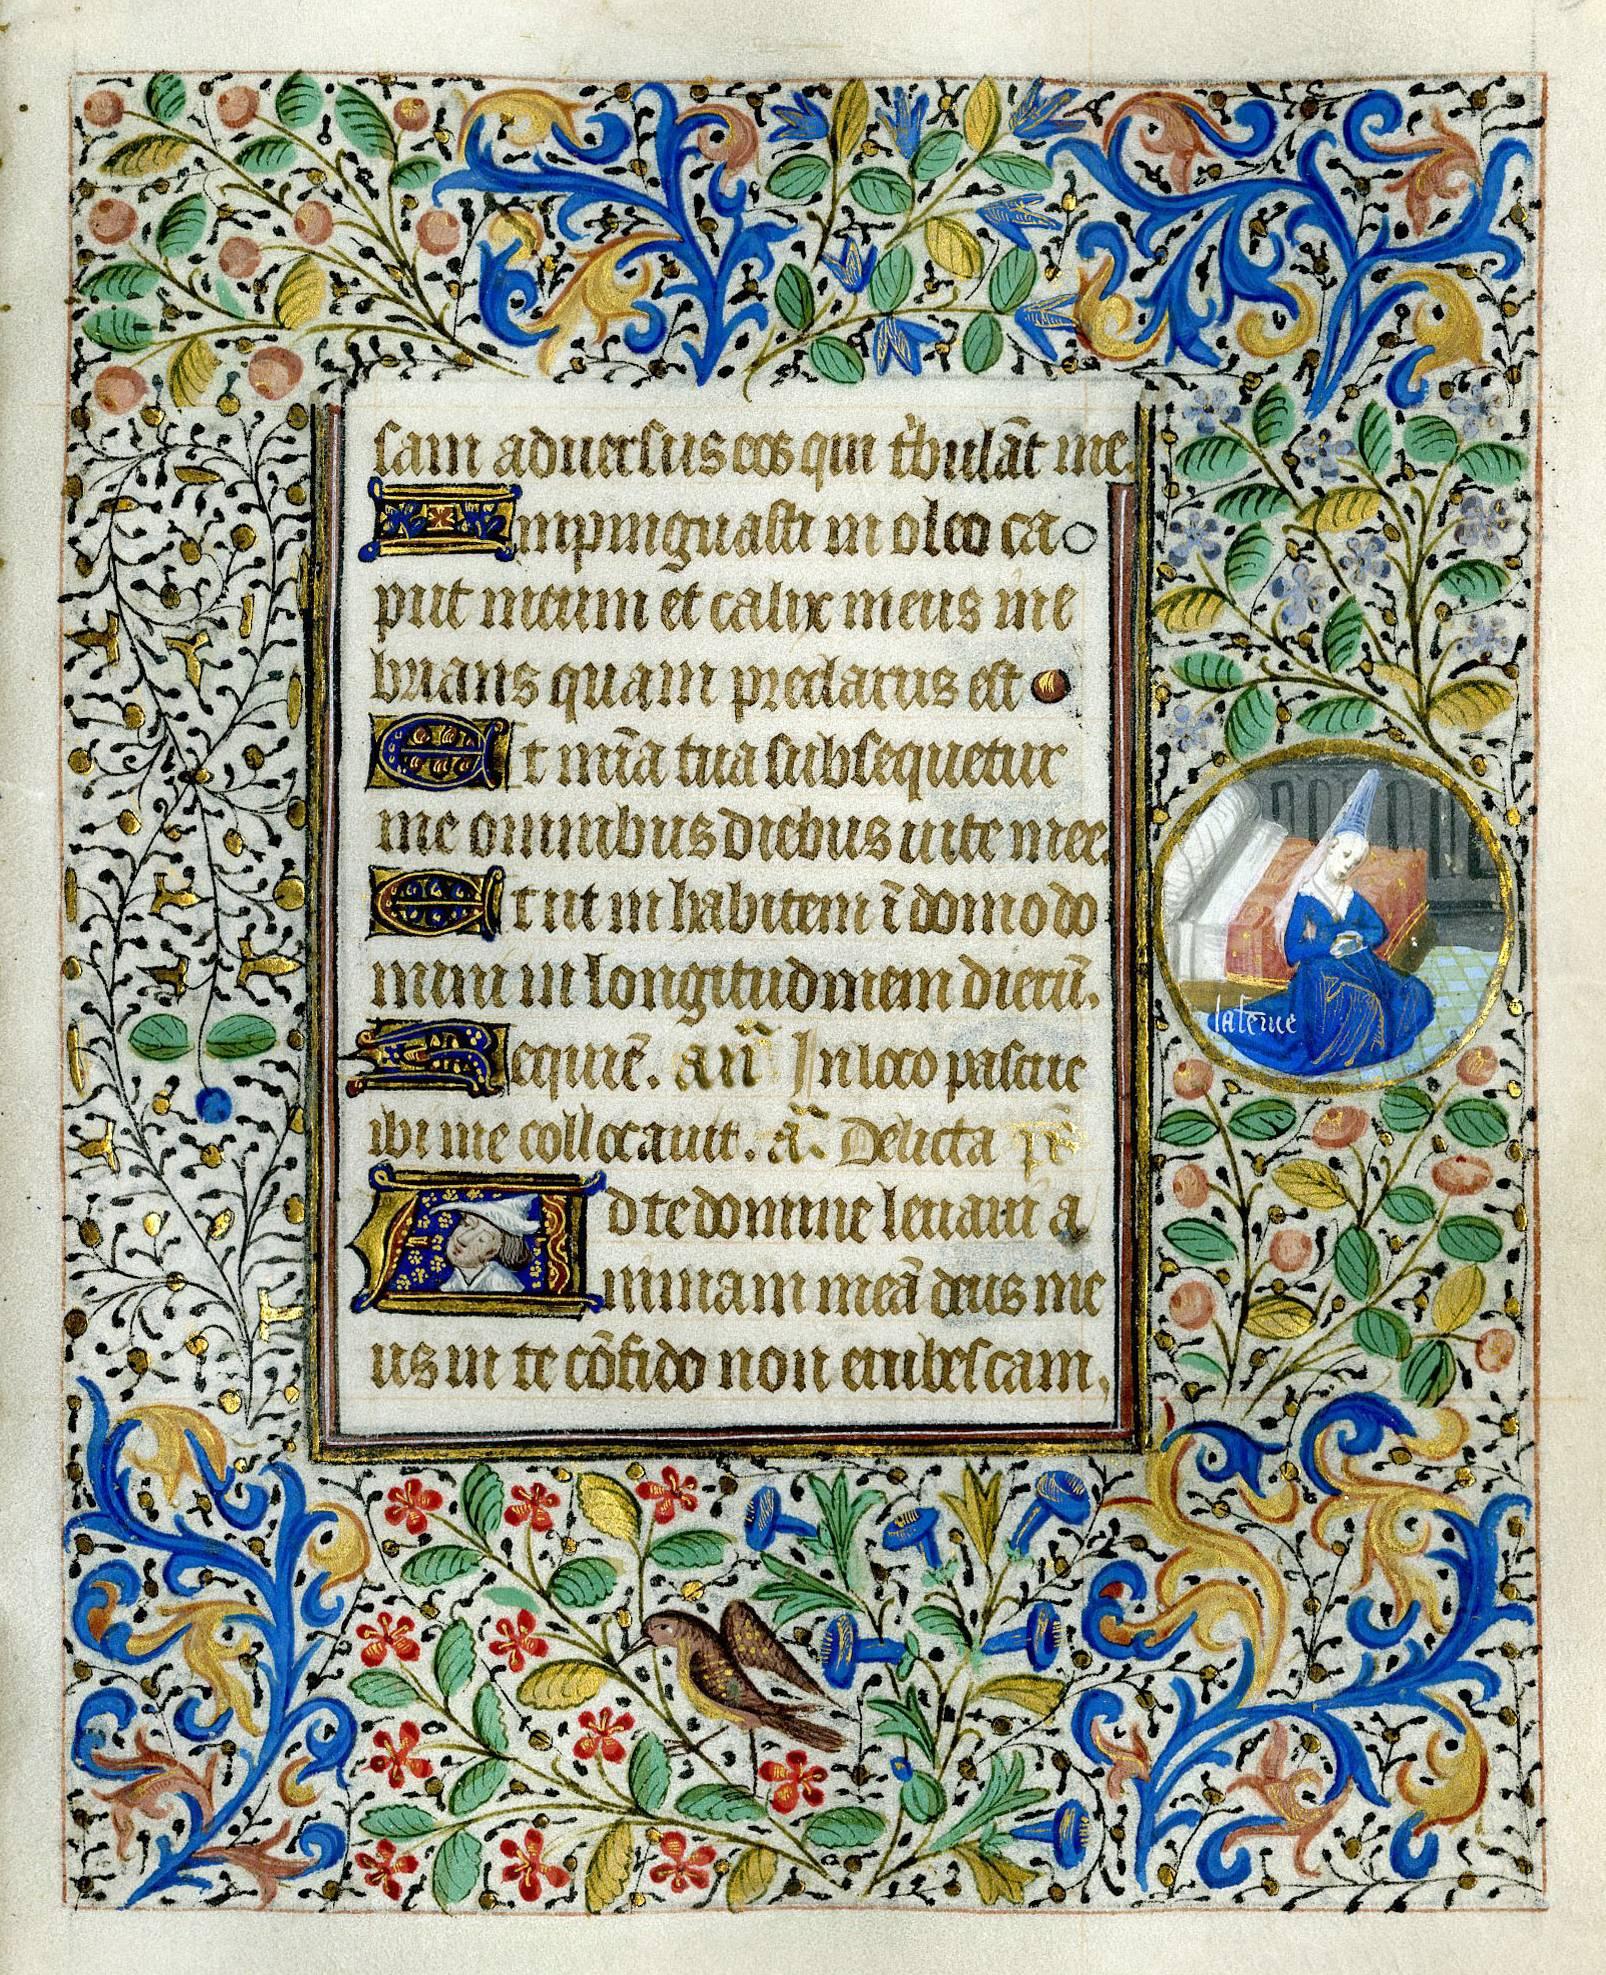 sam aduersus eos qui t'bulāt me.
Inpinguasti in oleo ca
put meum et calix meus ine
brians quam preclarus est
Et mīa tua subsequetur
me omnibus diebus uite mee.
Et ut inhabitem ī domo do
mini in longitudinem dierū.
Requiē. añ Jn loco pascue
ibi me collocauit. a. Delicta ps
Ad te domine leuaui a
nimam meā deus me
us in te cōfido non erubescam,
laseruE